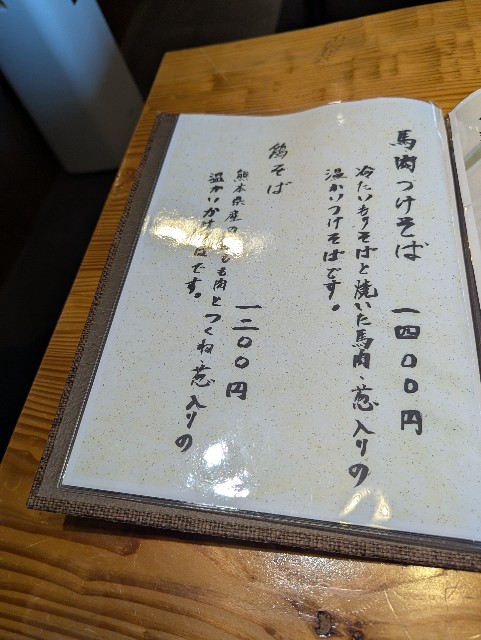 馬肉つけそば 一四〇〇円
冷たいもりそばと焼いた馬肉、葱入りの
温かいつけそばです。
鶏そば 一二〇〇円
熊本県産の もも肉とつくね、葱入りの
温かいかけそばです。